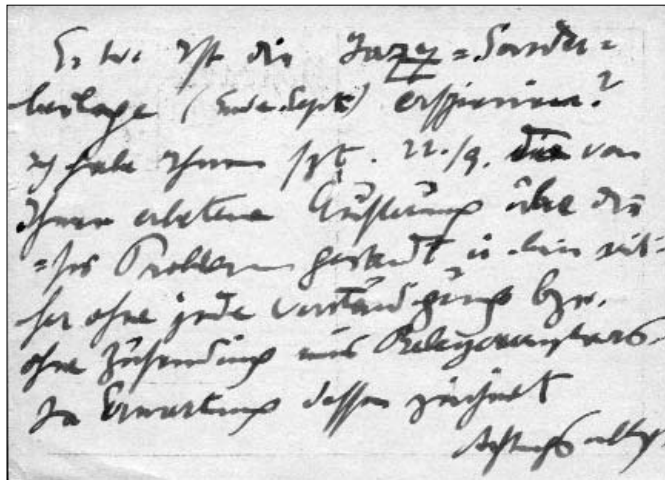 E. W. Ist die Jazz=Sonder=
beilage (Ende Sept) erschienen?
Ich habe Ihnen szt. 22./9. die von
Ihnen erbetene Äußerung über die
=ses Problem gesandt u. bin seit=
her ohne jede Verständigung bzw.
ohne Zusendung eines Belegexemplars.
In Erwartung dessen zeichnet
Achtungsvollst